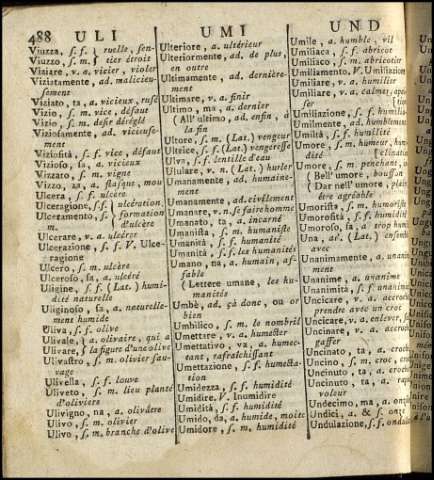 488 ULI UMI UND
Viuzza, s. f. } ruelle, sen-
Viuzzo, s. m. } tier étroit
Viziare, v. a. vicier, violer
Viziatamente, ad. malicieu-
sement
Viziato, ta, a. vicieux, rusé
Vizio, s. m. vice, défaut
Vizio, s. m. desir déréglé
Viziosamente, ad. vicieuse-
ment
Viziosità, s. f. vice, défaut
Vizioso, sa, a. vicieux
Vizzato, s. m. vigne
Vizzo, za, a. flasque, mou
Ulcera, s. f. ulcère
Ulceragione, s. f. } ulcération,
Ulceramento, s. } formation
m. } d'ulcère
Ulcerare, v. a. ulcérer
Ulcerazione, s. f. V. Ulce-
ragione
Ulcero, s. m. ulcère
Ulceroso, sa, a. ulcéré
Uligine, s. f. (Lat.) humi-
dité naturelle
Uliginoso, sa, a. naturelle-
ment humide
Uliva, s. f. olive
Ulivale, } a. olivaire, qui a
Ulivare, } la figure d'une olive
Ulivastro, s. m. olivier sau-
vage
Ulivella, s. f. louve
Uliveto, s. m. lieu planté
d'oliviers
Ulivigno, na, a. olivâtre
Ulivo, s. m. olivier
Ulivo, s. m. branche d'olive
Ulteriore, a. ultérieur
Ulteriormente, ad. de plus,
en outre
Ultimamente, ad. dernière-
ment
Ultimare, v. a. finir
Ultimo, ma, a. dernier
(All' ultimo, ad. enfin, à
la fin
Ultore, s. m. (Lat.) vengeur
Ultrice, s. f. (Lat.) vengeresse
Ulva, s. f. lentille d'eau
Ululare, v. n. (Lat.) hurler
Umanamente, ad. humaine-
ment
Umanamente, ad. civilement
Umanare, v. n. se faire homme
Umanato, ta, a. incarné
Umanista, s. m. humaniste
Umanità, s. f. humanité
Umanità, s. f. les humanités
Umano, na, a. humain, af-
fable
(Lettere umane, les hu-
manités
Umbè, ad. çà donc, ou or
bien
Umbilico, s. m. le nombril
Umettare, v. a. humecter
Umettativo, va, a. humec-
tant, rafraîchissant
Umettazione, s. f. humecta-
tion
Umidezza, s. f. humidité
Umidire, V. Inumidire
Umidità, s. f. humidité
Umido, da, a. humide, moite
Umidore, s. m. humidité
Umile, a. humble, vil
Umiliaca, s. f. abricot
Umiliaco, s. m. abricotier
Umiliamento, V. Umiliazione
Umiliare, v. a. humilier
Umiliare, v. a. calmer, apai-
ser
Umiliazione, s. f. humilité
Umilmente, ad. humblement
Umiltà, s. f. humilité
Umore, s. m. humeur, humi-
dité
Umore, s. m. penchant,
(Bell' umore, bouffon
(Dar nell' umore, plaire
être agréable
Umorista, s. m. humoriste
Umorosità, s. f. humidité
Umoroso, sa, a. trop humide
Una, av. (Lat.) ensemble
avec
Unanimamente, a. unanime-
ment
Unanimo, a. unanime
Unanimità, s. f. unanimité
Uncicare, v. a. accrocher,
prendre avec un croc
Uncicare, v. a. enlever,
Uncinare, v. a. accrocher,
gaffer
Uncinato, ta, a. crochu
Uncino, s. m. croc, crochet
Uncinuto, ta, a. rapace,
voleur
Undecimo, ma, a. onzième
Undici, a. & s. onze
Undulazione, s. f. ondulation